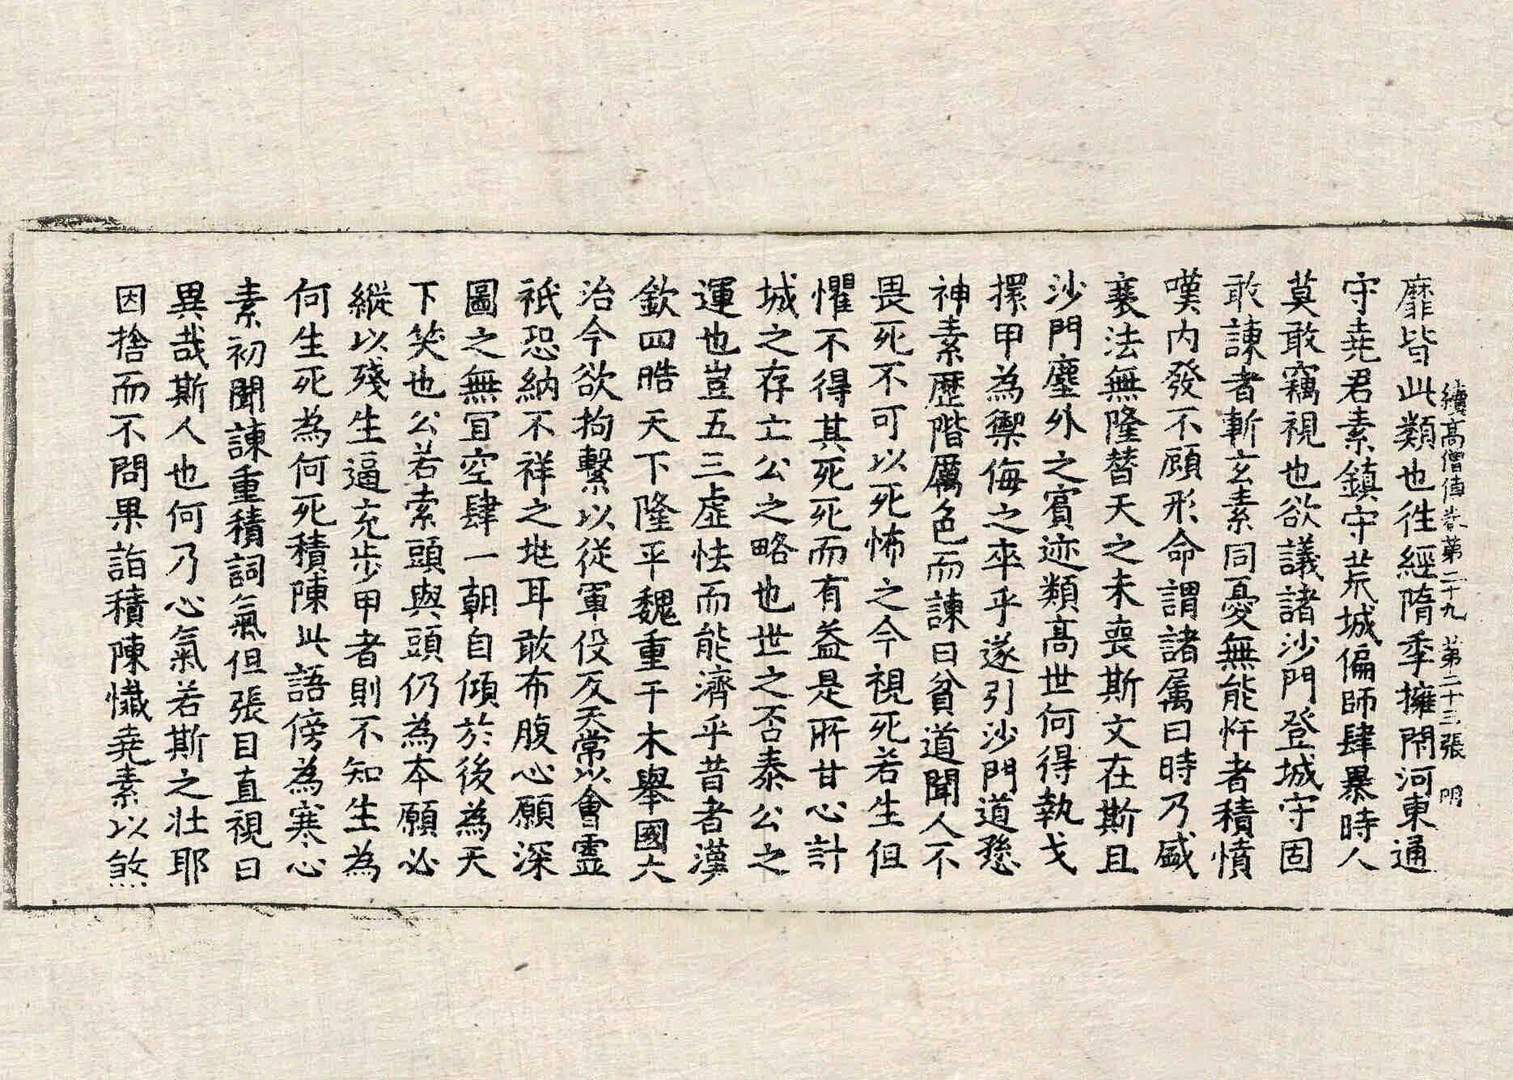 續高僧傳卷第二十九 第二十三張 明
靡皆此類也往經隋季擁閉河東通
守堯君素鎮守荒城偏師肆暴時人
莫敢竊視也欲議諸沙門登城守固
敢諫者斬玄素同憂無能忤者積憤
嘆內發不顧形命謂諸属曰時乃盛
衰法無隆替天之未喪斯文在斯且
沙門塵外之賓迹類高世何得執戈
擐甲為禦侮之卒乎遂引沙門道愻
神素歷階厲色而諫曰貧道聞人不
畏死不可以死怖之今視死若生但
懼不得其死死而有益是所甘心計
城之存亡公之略也世之否泰公之
運也豈五三虛怯而能濟乎昔者漢
欽四皓天下隆平魏重干木舉國大
治今欲拘繫以從軍役反天常以會靈
祇恐納不祥之地耳敢布腹心願深
圖之無宜空肆一朝自傾於後為天
下笑也公若索頭與頭仍為本願必
縱以殘生逼充步甲者則不知生為
何生死為何死積陳此語傍為寒心
素初聞諫重積詞氣但張目直視曰
異哉斯人也何乃心氣若斯之壯耶
因捨而不問果詣積陳懺堯素以煞